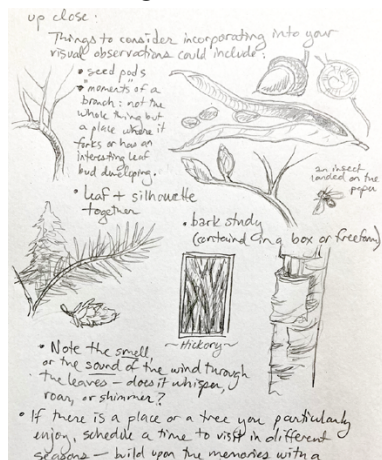 up close:
Things to consider incorporating into your
visual observations could include:
• seed pods
• moments of a
branch: not the
whole thing but
a place where it
forks or how an
interesting leaf
bud developing.
• leaf + silhouette
together
an insect
landed on the
paper
• bark study
(contained in a box or freeform)
~Hickory~
• Note the smell,
or the sound of the wind through
the leaves – does it whisper,
roar, or shimmer?
• If there is a place or a tree you particularly
enjoy, schedule a time to visit in different
seasons – build upon the memories with a